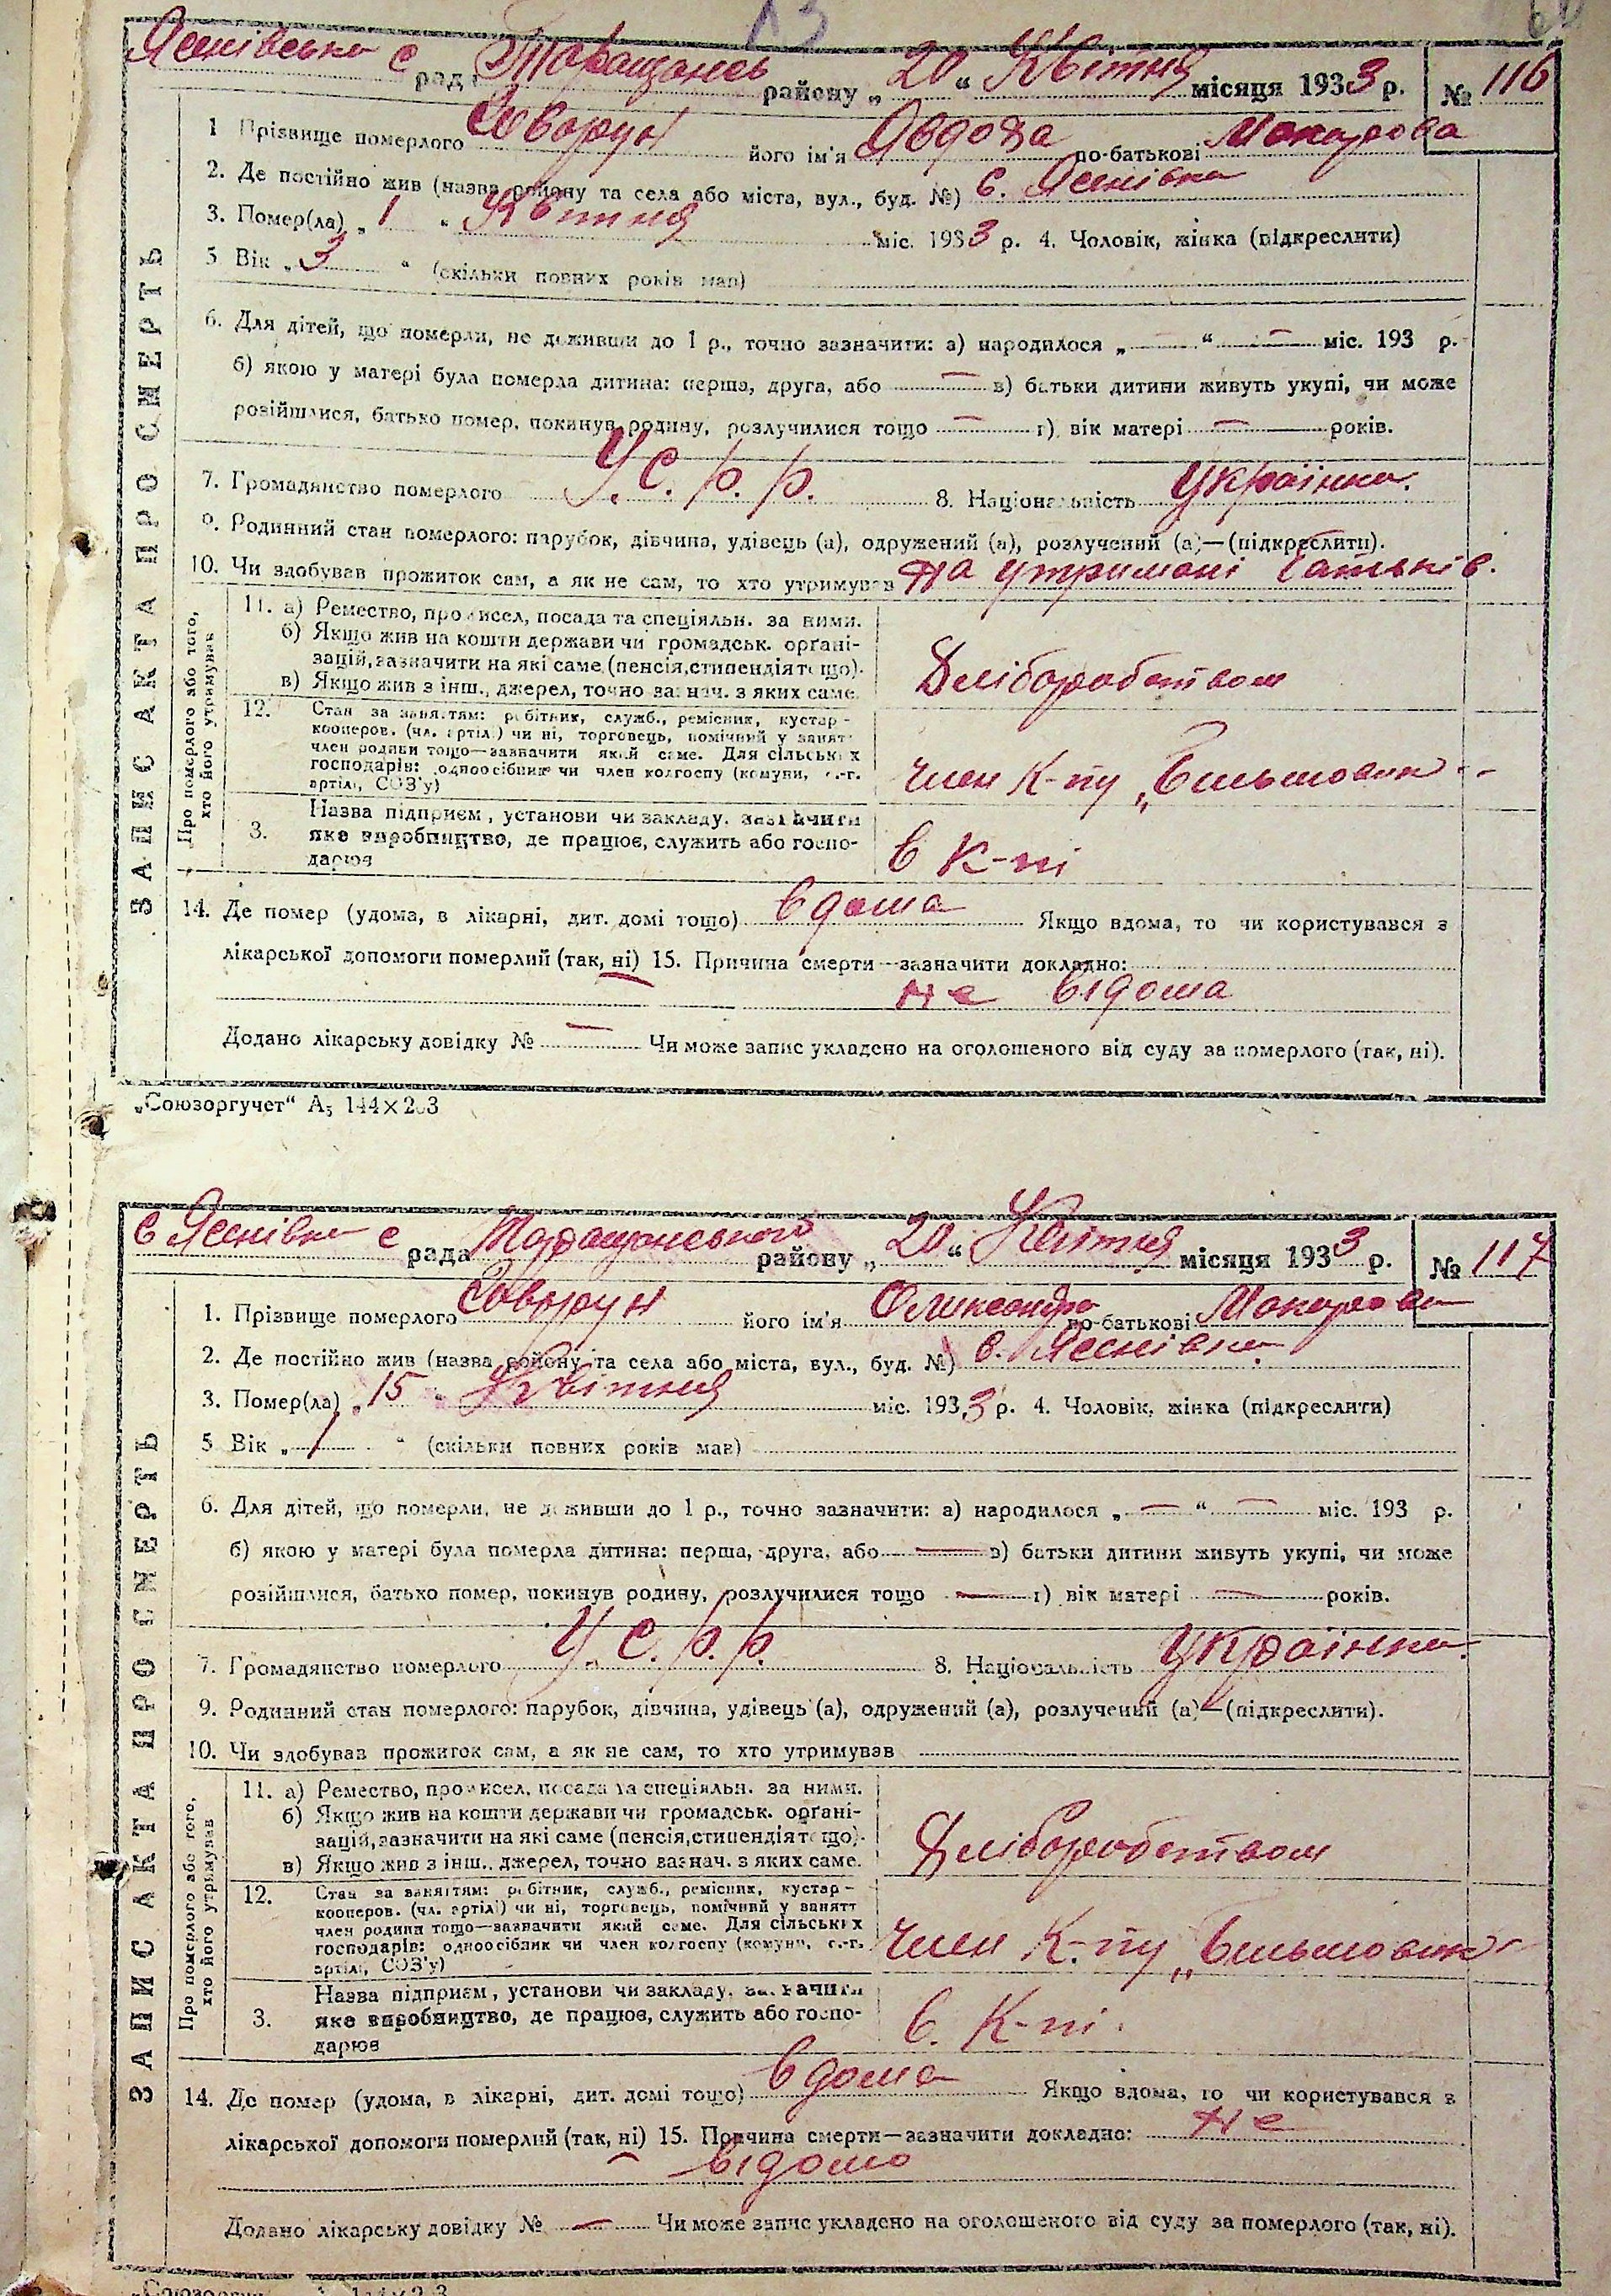 13
Яснівська с рада Таращансь району „20“ Квітня місяця 1933 р. № 116
ЗАПИС АКТА ПРО СМЕРТЬ
1 Прізвище померлого Говорун його ім'я Явдоха по-батькові Макарова
2. Де постійно жив (назва району та села або міста, вул., буд. №) с. Яснівка
3. Помер(ла) „1“ Квітня міс. 1933 р. 4. Чоловік, жінка (підкреслити)
5 Вік „3“ (скільки повних років мав)
6. Для дітей, що померли, не доживши до 1 р., точно зазначити: а) народилося „—“ — міс. 193 р.
б) якою у матері була померла дитина: перша, друга, або — в) батьки дитини живуть укупі, чи може
розійшлися, батько помер, покинув родину, розлучилися тощо — г) вік матері — років.
7. Громадянство померлого У.С.р.р. 8. Національність Українка.
9. Родинний стан померлого: парубок, дівчина, удівець (а), одружений (а), розлучений (а)—(підкреслити).
10. Чи здобував прожиток сам, а як не сам, то хто утримував на утримані батьків.
Про померлого або того, хто його утримував
11. а) Ремество, промисел, посада та спеціяльн. за ними.
б) Якщо жив на кошти держави чи громадськ. орґані-
зацій, зазначити на які саме (пенсія, стипендія тощо).
в) Якщо жив з інш., джерел, точно зазнач. з яких саме.
Хліборобством
12. Стан за заняттям: робітник, служб., ремісник, кустар-
кооперов. (чл. артілі) чи ні, торговець, помічний у занятт
член родини тощо—зазначити який саме. Для сільських
господарів: одноосібник чи член колгоспу (комуни, с.-г.
артілі, СОЗ'у)
член К-пу „Більшовик“
3. Назва підприєм, установи чи закладу, зазначити
яке виробництво, де працює, служить або госпо-
дарює
в К-пі
14. Де помер (удома, в лікарні, дит. домі тощо) вдома Якщо вдома, то чи користувався з
лікарської допомоги померлий (так, ні) 15. Причина смерти—зазначити докладно:
не відома
Додано лікарську довідку № — Чи може запис укладено на оголошеного від суду за померлого (так, ні).
„Союзоргучет“ А5 144×203
в Яснівка с рада Таращанського району „20“ Квітня місяця 1933 р. № 117
ЗАПИС АКТА ПРО СМЕРТЬ
1. Прізвище померлого Говорун його ім'я Олександра по-батькові Макарова
2. Де постійно жив (назва району та села або міста, вул., буд. №) с. Яснівка
3. Помер(ла) „15“ Квітня міс. 1933 р. 4. Чоловік, жінка (підкреслити)
5 Вік „1“ (скільки повних років мав)
6. Для дітей, що померли, не доживши до 1 р., точно зазначити: а) народилося „—“ — міс. 193 р.
б) якою у матері була померла дитина: перша, друга, або — в) батьки дитини живуть укупі, чи може
розійшлися, батько помер, покинув родину, розлучилися тощо — г) вік матері — років.
7. Громадянство померлого У.С.р.р. 8. Національність Українка.
9. Родинний стан померлого: парубок, дівчина, удівець (а), одружений (а), розлучений (а)—(підкреслити).
10. Чи здобував прожиток сам, а як не сам, то хто утримував
Про померлого або того, хто його утримував
11. а) Ремество, промисел, посада та спеціяльн. за ними.
б) Якщо жив на кошти держави чи громадськ. орґані-
зацій, зазначити на які саме (пенсія, стипендія тощо).
в) Якщо жив з інш., джерел, точно зазнач. з яких саме.
Хліборобством
12. Стан за заняттям: робітник, служб., ремісник, кустар-
кооперов. (чл. артілі) чи ні, торговець, помічний у занятт
член родини тощо—зазначити який саме. Для сільських
господарів: одноосібник чи член колгоспу (комуни, с.-г.
артілі, СОЗ'у)
член К-пу „Більшовик“
3. Назва підприєм, установи чи закладу, зазначити
яке виробництво, де працює, служить або госпо-
дарює
в. К-пі.
14. Де помер (удома, в лікарні, дит. домі тощо) вдома Якщо вдома, то чи користувався з
лікарської допомоги померлий (так, ні) 15. Причина смерти—зазначити докладно: не
відомо
Додано лікарську довідку № — Чи може запис укладено на оголошеного від суду за померлого (так, ні).